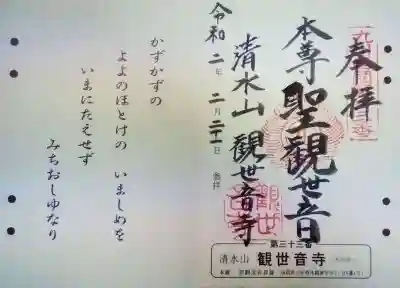 奉拝
本尊 聖観世音
清水山 観世音寺
令和二年二月二十一日 参拝
かずかずの
よよのほとけの いましめを
いまにたえせず
みちおしゆなり
第三十三番
清水山 観世音寺
観世音寺